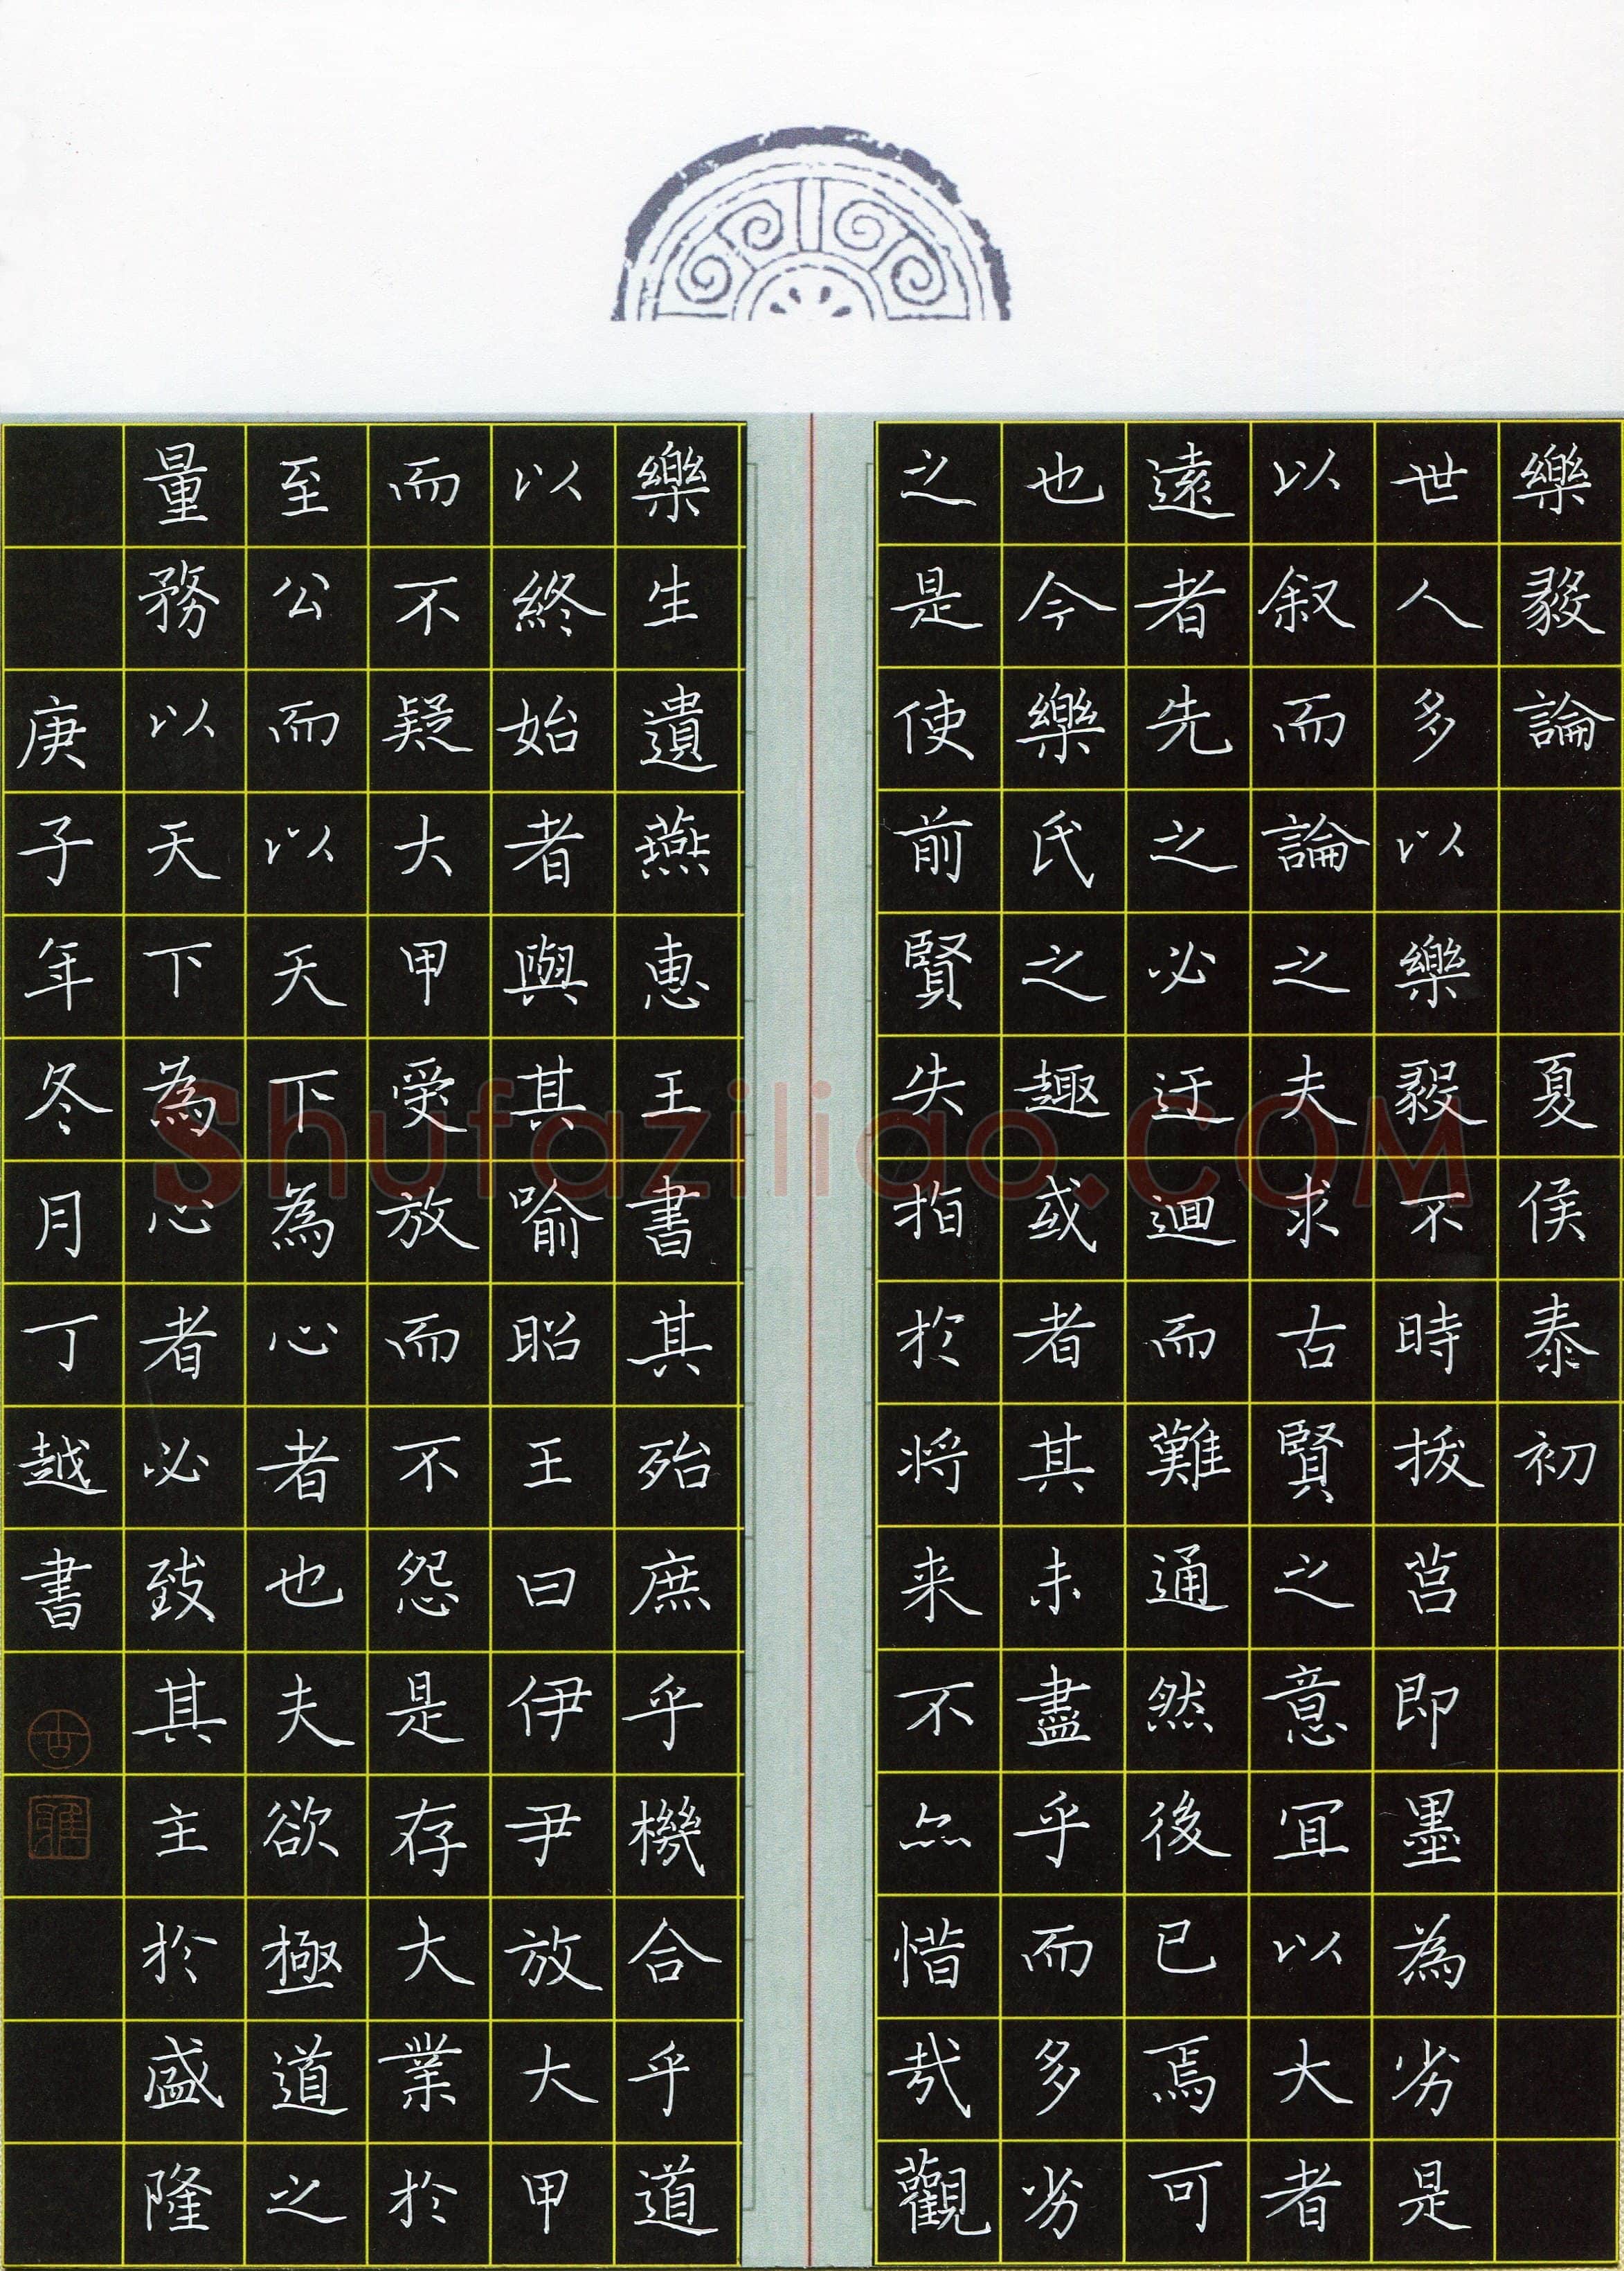 樂毅論 夏侯泰初
世人多以樂毅不時拔莒即墨為劣是
以叙而論之夫求古賢之意冝以大者
遠者先之必迂迴而難通然後已焉可
也今樂氏之趣或者其未盡乎而多劣
之是使前賢失指於将来不亦惜哉觀
樂生遺燕惠王書其殆庶乎機合乎道
以終始者與其喻昭王曰伊尹放大甲
而不疑大甲受放而不怨是存大業於
至公而以天下為心者也夫欲極道之
量務以天下為心者必致其主於盛隆
庚子年冬月丁越書
Shufaziliao.COM